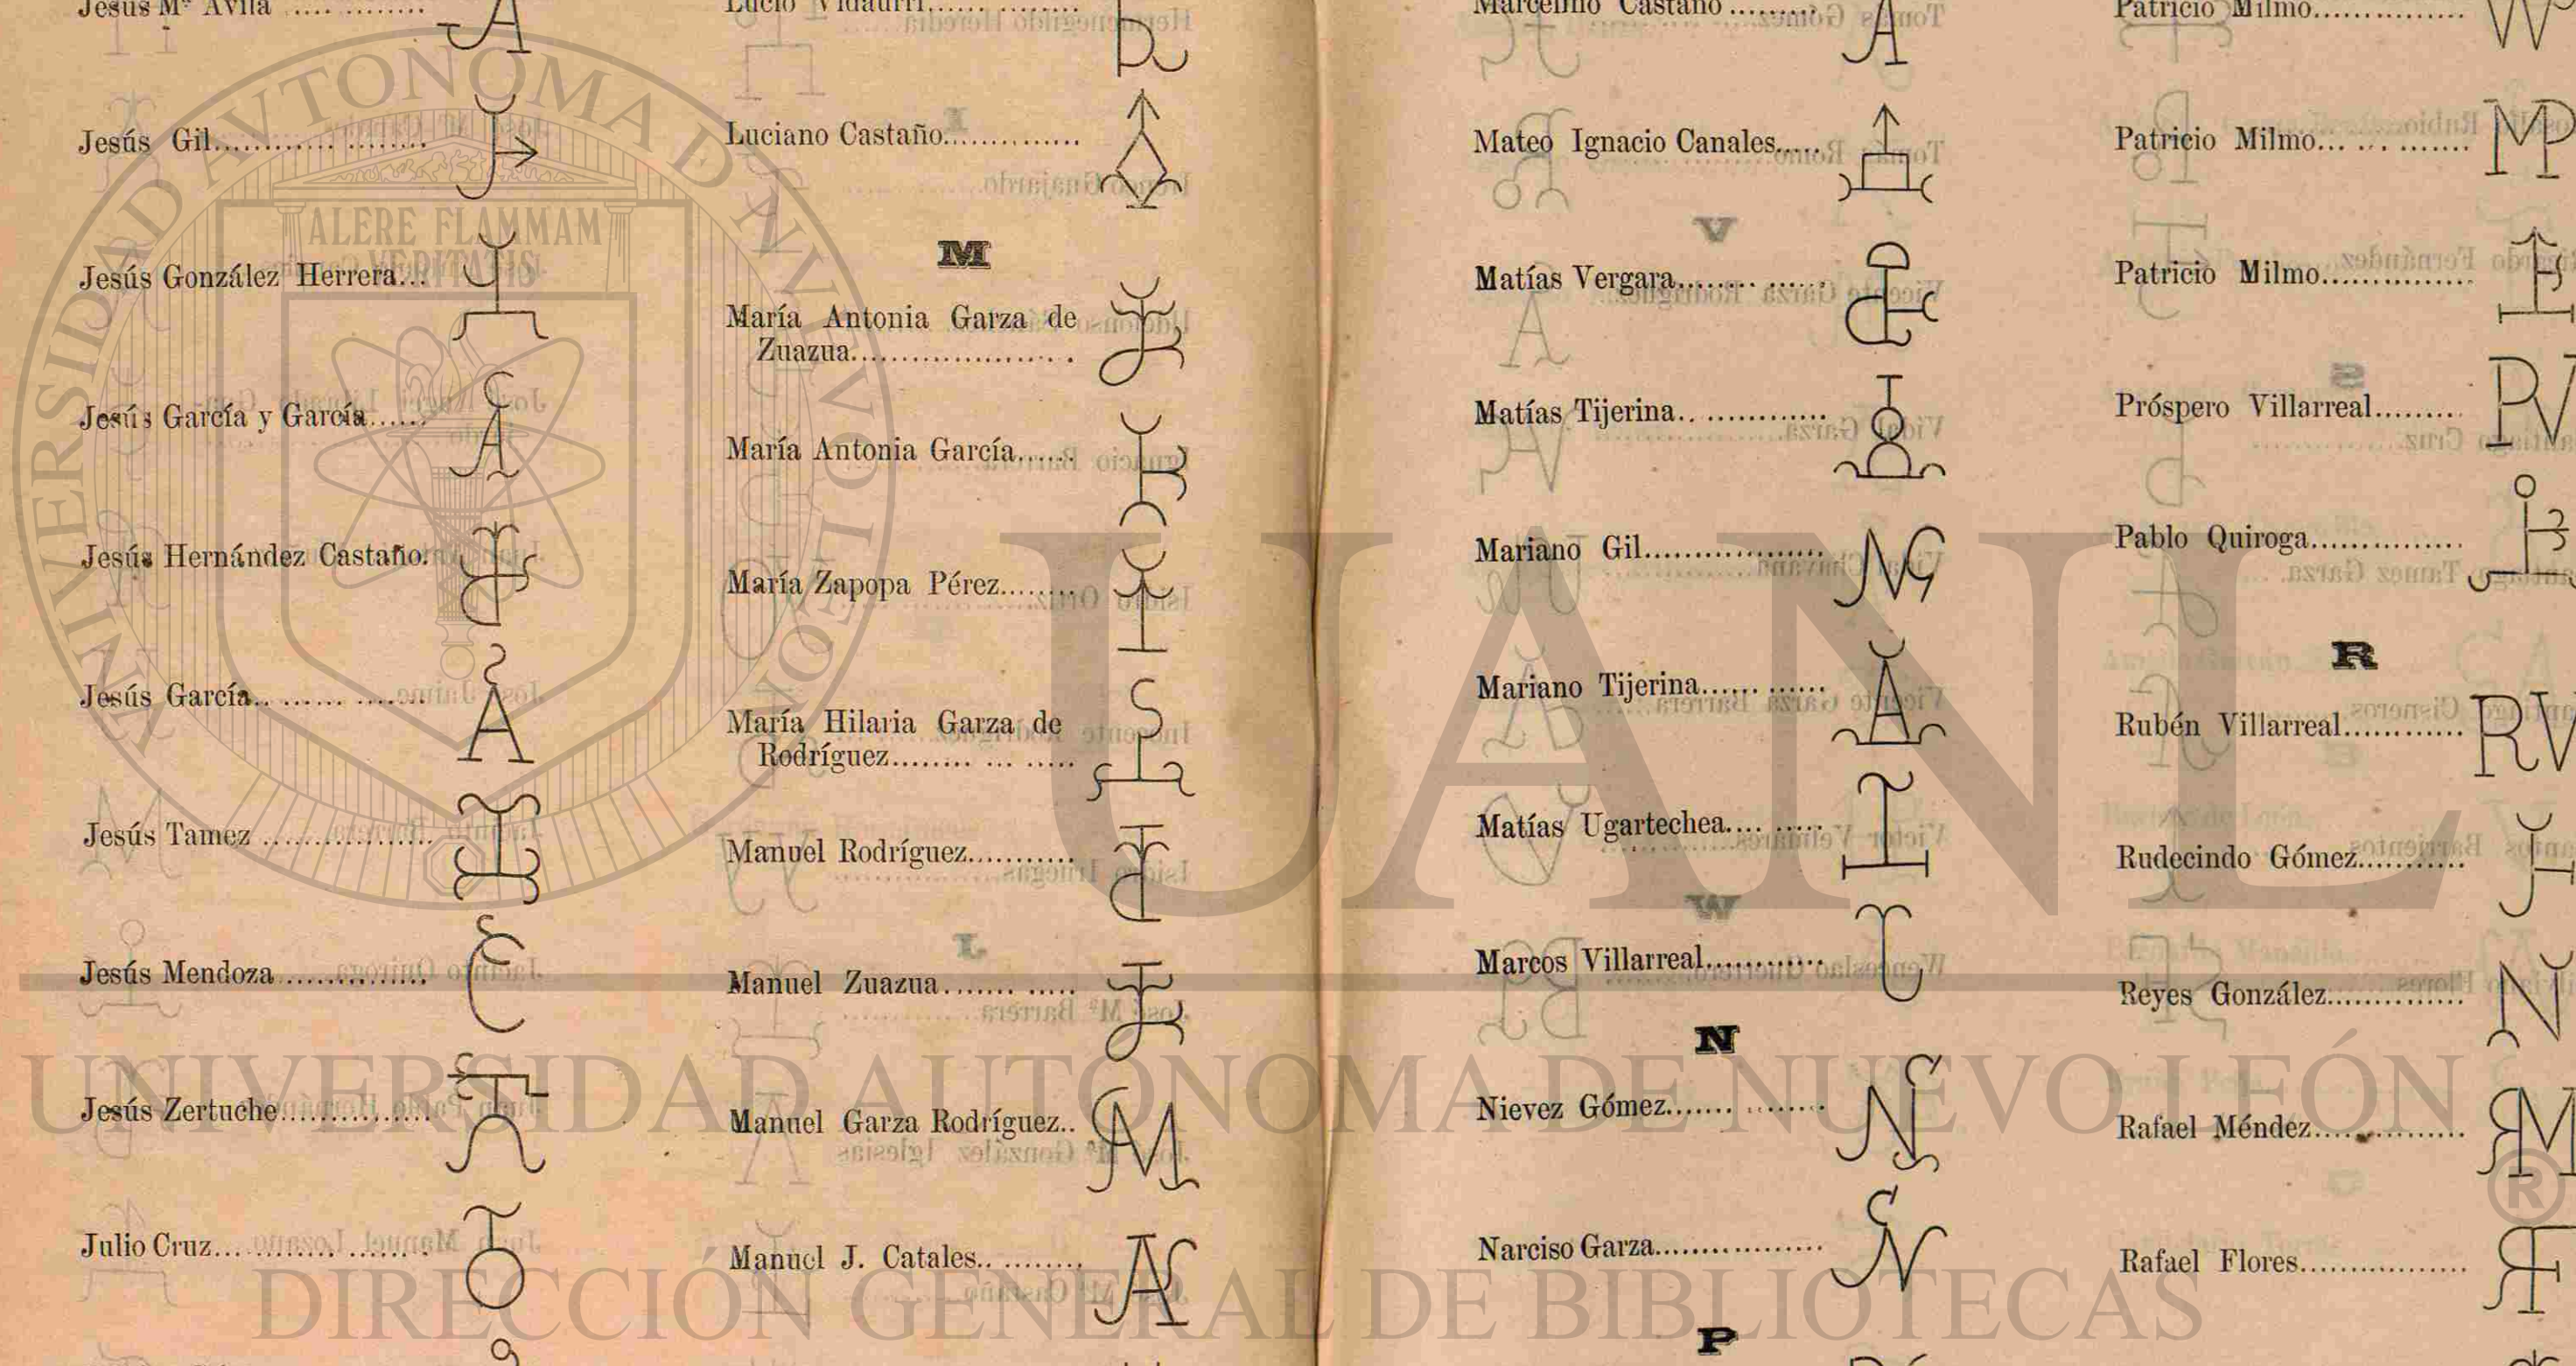 Jesús Mª Avila .... ........
Jesús Gil............ ........
Jesús González Herrera...
Jesús García y García......
Jesús Hernández Castaño.
Jesús García.. ...... .......
Jesús Tamez .................
Jesús Mendoza ..............
Jesús Zertuche...............
Julio Cruz... ......... ........
Lucio Vidaurri...... ........
Luciano Castaño..............
M
María Antonia Garza de
Zuazua......................
María Antonia García......
María Zapopa Pérez........
María Hilaria Garza de
Rodríguez........ ... .....
Manuel Rodríguez...........
Manuel Zuazua....... .....
Manuel Garza Rodríguez..
Manuel J. Catales.. ........
Marcelino Castaño .........
Mateo Ignacio Canales.....
Matías Vergara......... ......
Matías Tijerina.. ............
Mariano Gil..................
Mariano Tijerina...... ......
Matías Ugartechea.... .....
Marcos Villarreal............
N
Nievez Gómez....... ........
Narciso Garza.................
P
Patricio Milmo...............
Patricio Milmo... ... .......
Patricio Milmo...............
Próspero Villarreal.........
Pablo Quiroga...............
R
Rubén Villarreal............
Rudecindo Gómez...........
Reyes González..............
Rafael Méndez...............
Rafael Flores.................
UNIVERSIDAD AVTONOMA D NVVO LEON
ALERE FLAMMAM
VERITATIS
UANL
UNIVERSIDAD AUTÓNOMA DE NUEVO LEÓN
®
DIRECCIÓN GENERAL DE BIBLIOTECAS